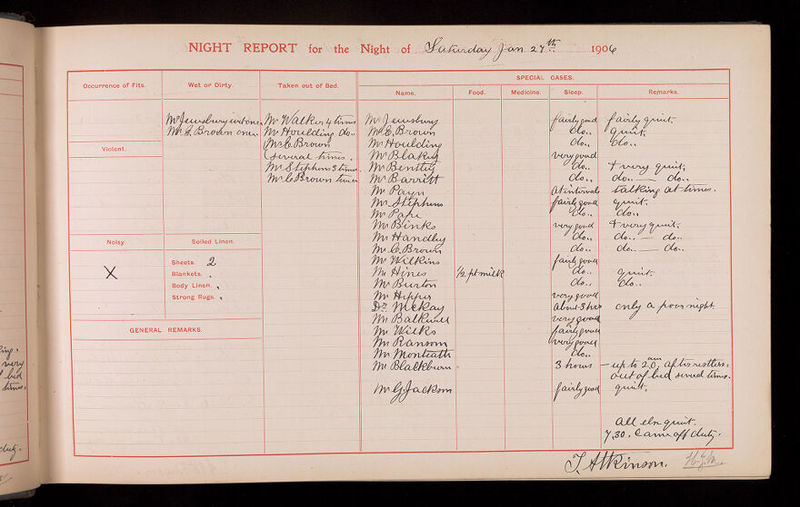 NIGHT REPORT for the Night of Saturday Jan 27th 1906
Occurrence of Fits.
Wet or Dirty.
Taken out of Bed.
SPECIAL CASES.
Name.
Food.
Medicine.
Sleep.
Remarks.
Mr Walker 4 times
Mr Houlding do..
Mr C. Brown
Several times.
Mr Stephens 3 times.
Violent.
Noisy.
X
Soiled Linen.
Sheets. 2
Blankets. ,
Body Linen. ,
Strong Rugs. ,
GENERAL REMARKS.
Mr Brown fairly good quiet.
Mr Houlding do.. do..
Mr Blakey very good
Mr Bentley do.. + very quiet.
Mr Barritt do.. do.. — do..
Mr Payn At intervals talking at times.
Mr Stephens fairly good quiet.
Mr Pape do.. do..
Mr Binks very good + very quiet.
Mr Handley do.. do.. — do..
Mr C. Brown do.. do.. — do..
Mr Wilkins fairly good
Mr Hines ½ pt milk do.. quiet.
Mr Burton do.. do..
Mr Hipper very good
Dr McKay about 3 hrs only a poor night.
Mr Balkwill very good
Mr Wilks fairly good
Mr Ransom very good
Mr Monteath do..
Mr Blackburn 3 hours — up to 2.0, am after restless,
out of bed several times.
Mr G Jackson fairly good quiet.
All else quiet.
7.30. Came off duty.
T. Atkinson.